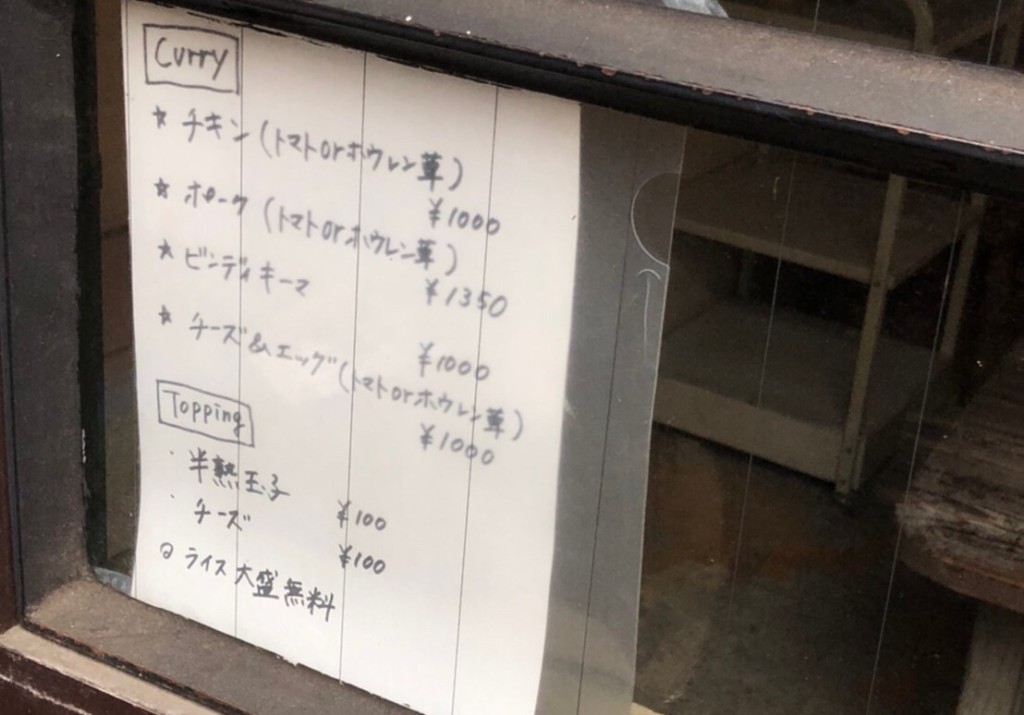 Curry
★ チキン (トマトorホウレン草)
¥1000
★ ポーク (トマトorホウレン草)
¥1350
★ ビンディキーマ
¥1000
★ チーズ&エッグ(トマトorホウレン草)
¥1000
Topping
・半熟玉子
¥100
・チーズ
¥100
◎ ライス大盛無料